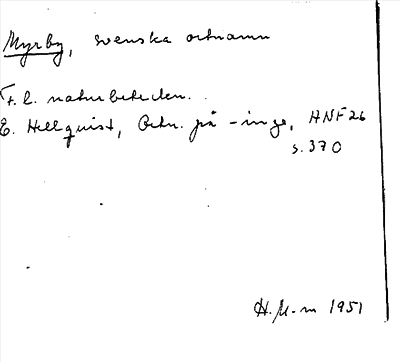 Myrby, svenska ortnamn
F. l. naturbeteckn.
E. Hellquist, Ortn. på -inge, ANF 26
s. 370
H. M-m 1951